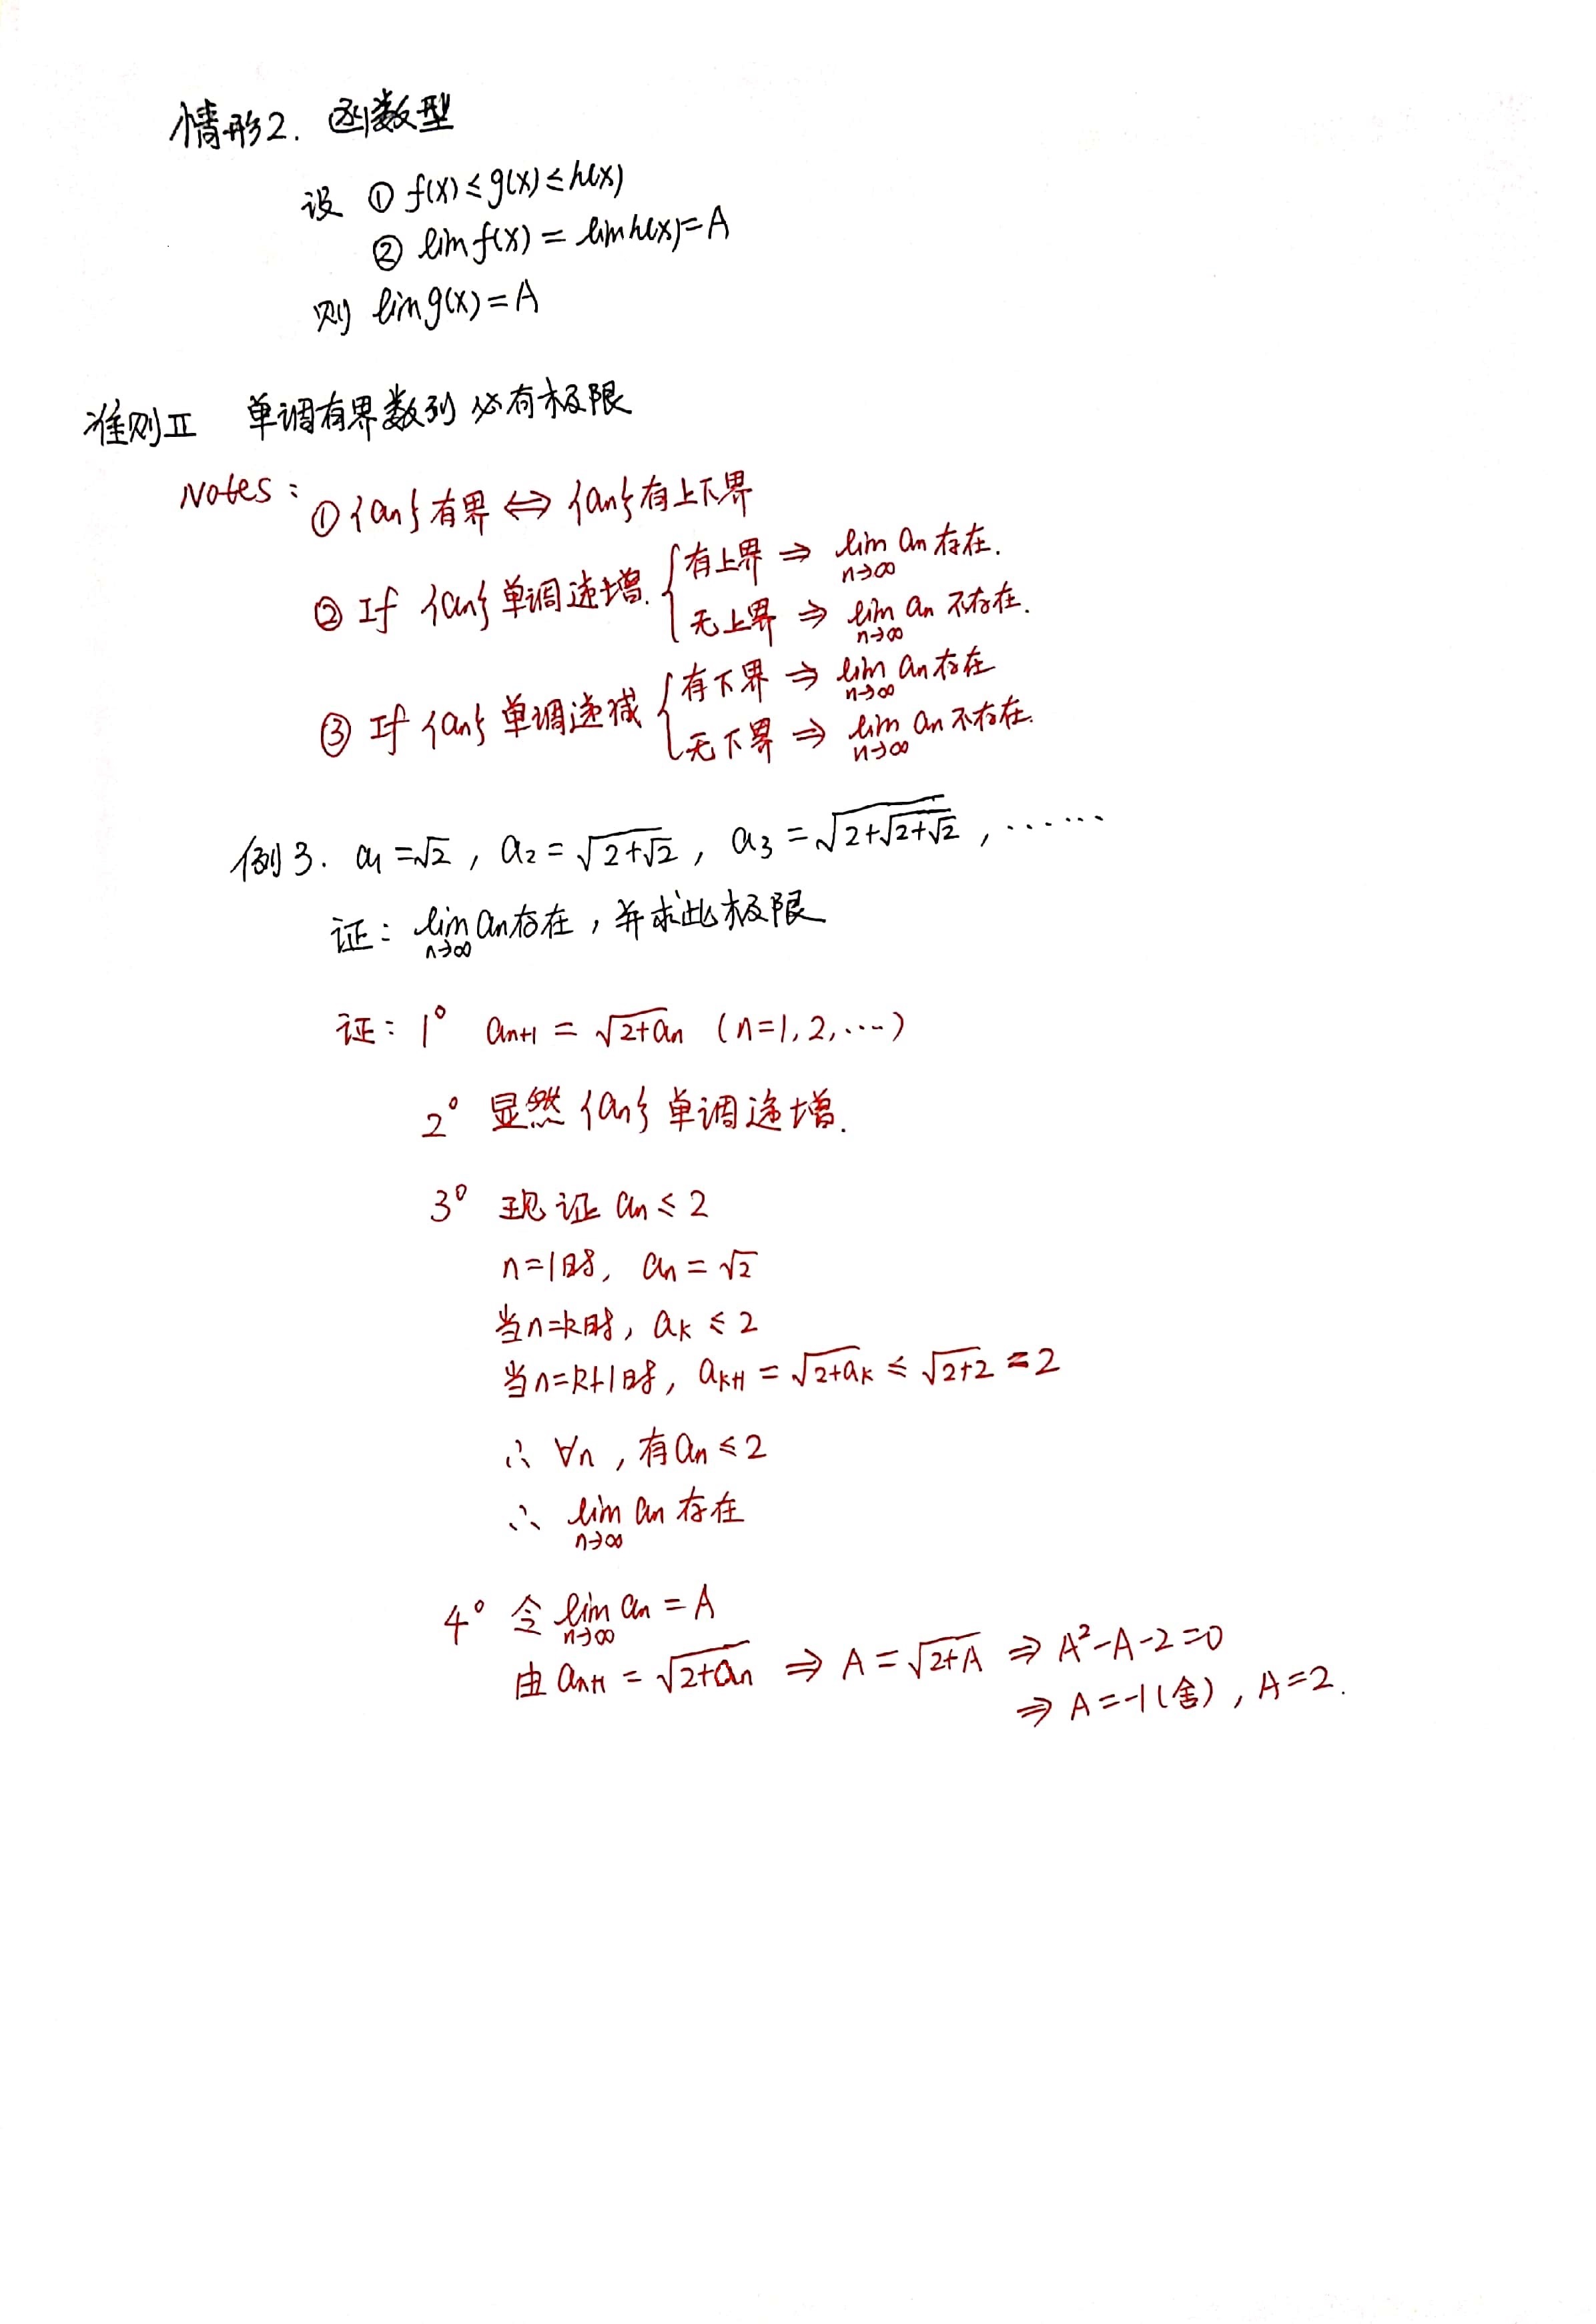 情形2. 函数型
设 ① f(x)≤g(x)≤h(x)
② lim f(x) = lim h(x)=A
则 lim g(x)=A
准则Ⅱ 单调有界数列必有极限
Notes: ①{an}有界 ⇔ {an}有上下界
② If {an}单调递增. { 有上界 ⇒ lim n→∞ an 存在.
无上界 ⇒ lim n→∞ an 不存在.
③ If {an}单调递减 { 有下界 ⇒ lim n→∞ an 存在
无下界 ⇒ lim n→∞ an 不存在.
例3. a1=√2, a2=√(2+√2), a3=√(2+√(2+√2)), ······
证: lim n→∞ an存在, 并求此极限
证: 1° an+1 = √(2+an) (n=1,2,···)
2° 显然{an}单调递增.
3° 现证 an≤2
n=1时, an=√2
当n=k时, ak≤2
当n=k+1时, ak+1 = √(2+ak) ≤ √(2+2) = 2
∴ ∀n, 有an≤2
∴ lim n→∞ an 存在
4° 令 lim n→∞ an = A
由 an+1 = √(2+an) ⇒ A=√(2+A) ⇒ A²-A-2=0
⇒ A=-1(舍), A=2.